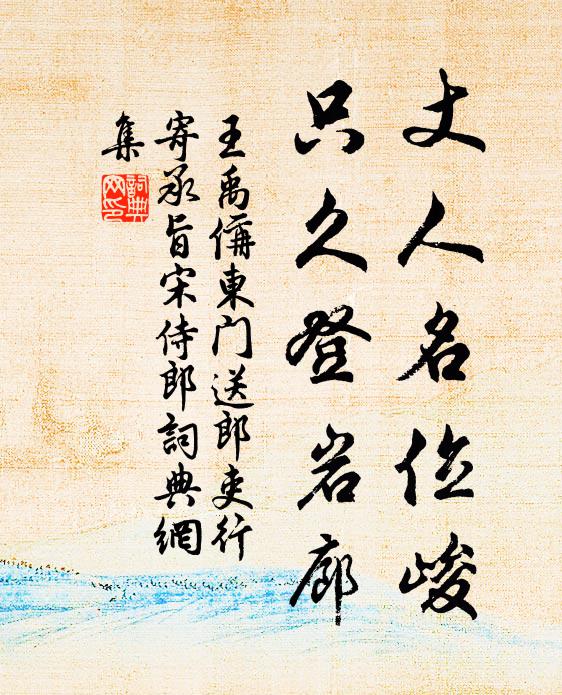 丈人名位峻
只久登岩廊
王禹偁東门送郎吏行
寄承旨宋侍郎詞典網
集
詞典网印